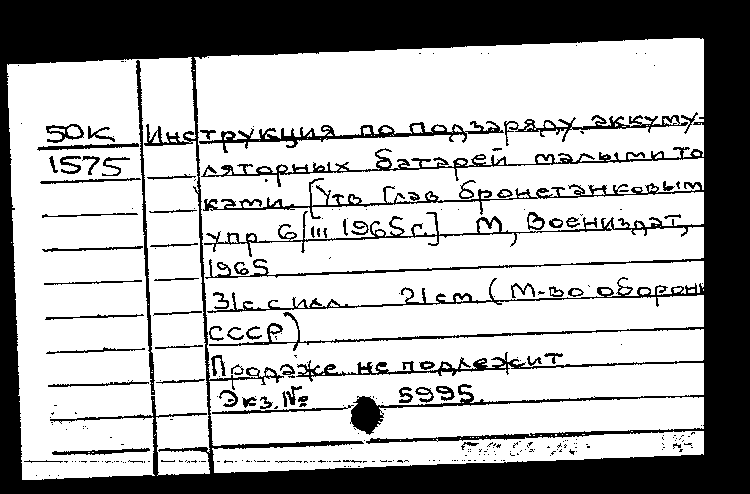 50К Инструкция по подзаряду аккуму-
1575 ляторных батарей малыми то
ками. [Утв Глав бронетанковым
упр 6/III 1965 г.] М, Воениздат,
1965
31 с. с илл. 21 cm (М-во оборон
СССР)
Продаже не подлежит
Экз. № 5995.